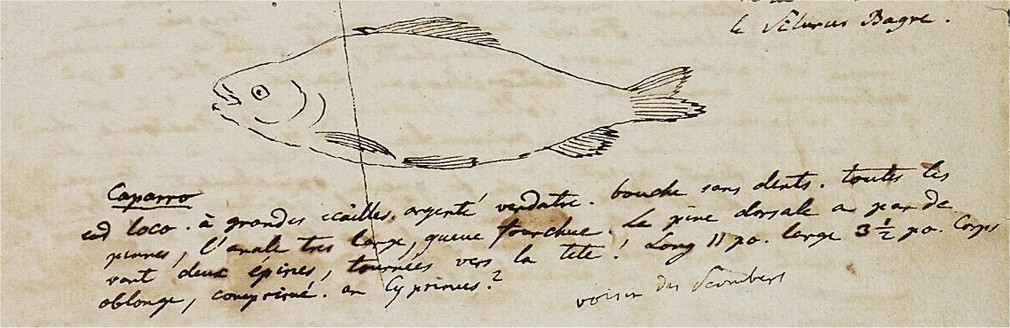 le Silurus Bagre.
Caparro
eod loco. à grandes écailles. argenté verdatre. bouche sans dents. toutes les
pinnes, l'anale tres large, queue fourchue. Le pine dorsale a par de
vant deux épines, tournées vers la tete! Long 11 po. large 3 1/2 po. Corps
oblonge, comprimé. an Cyprinus?
voisin des Scombers